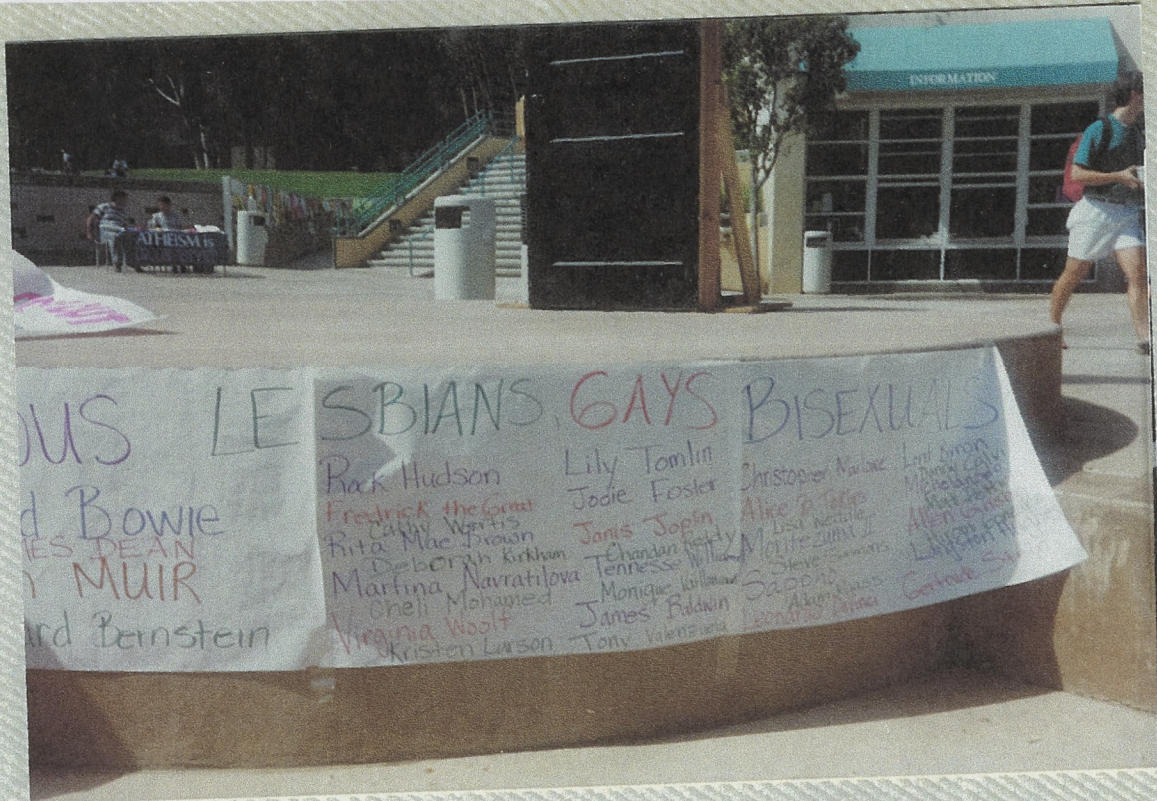 INFORMATION
ATHEISM is
OUS LESBIANS, GAYS BISEXUALS
d Bowie
MES DEAN
MUIR
ard Bernstein
Rock Hudson
Fredrick the Great
Cathy Wertis
Rita Mae Brown
Deborah Kirkham
Martina Navratilova
Cheli Mohamed
Virginia Woolf
Kristen Larson
Lily Tomlin
Jodie Foster
Janis Joplin
Chandan Reddy
Tennesse William
Monique
James Baldwin
Tony Valenzuela
Christopher Marlowe
Alice B. Toklas
Lisa
Montezuma II
Steve
Sappho
Adam
Leonardo DaVinci
Lord Byron
Michelangelo
Allen
Langston
Gertrude